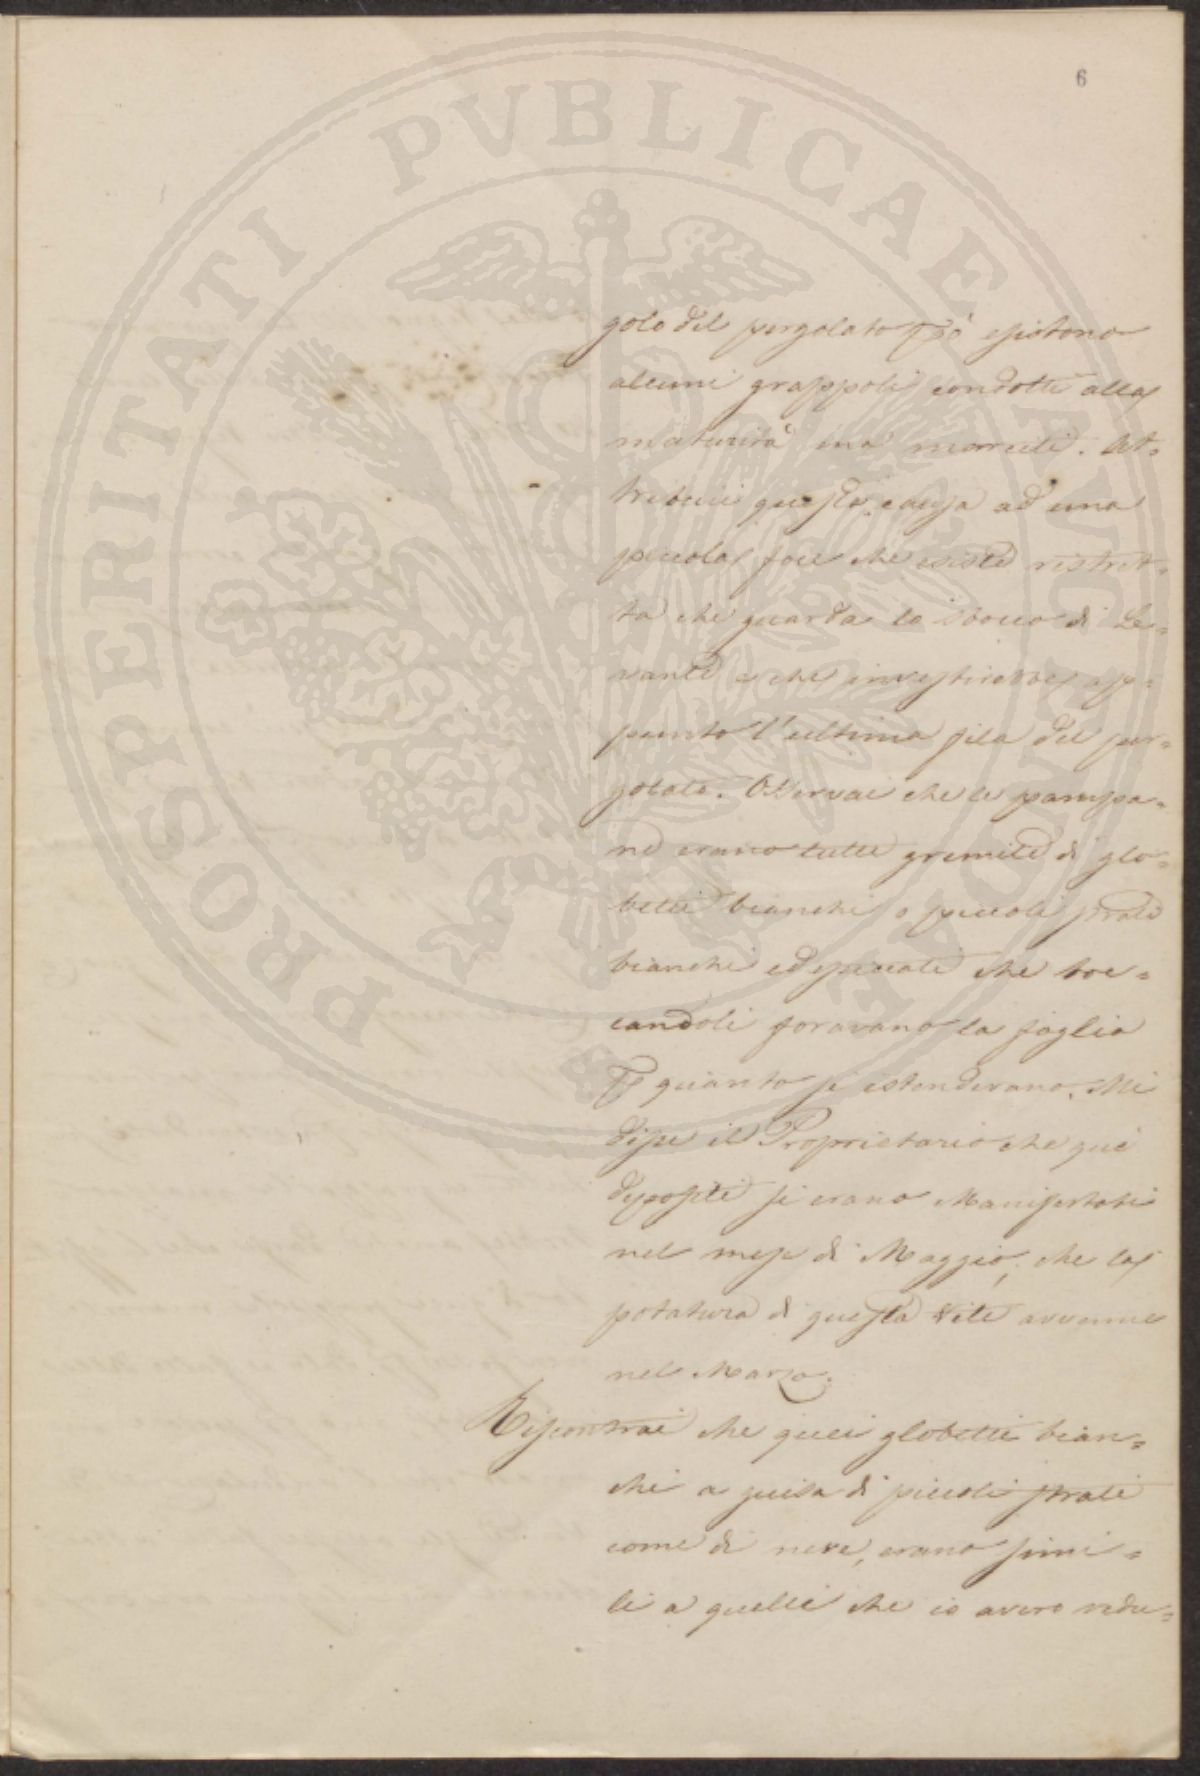 6
PROSPERITATI PVBLICAE AVGENDAE
golo del pergolato però esistono
alcuni grappoli condotti alla
maturità ma morciti. At=
tribuii questa causa ad una
piccola foce che esiste ristret=
ta che guarda lo sbocco di Le=
vante e che investirebbe ap=
punto l'ultima fila del per=
golato. Osservai che le pampa=
ne erano tutte gremite di glo=
betti bianchi o piccoli strati
bianchi ed spiccati che toc=
candoli foravano la foglia
quanto si estendevano. Mi
disse il Proprietario che quei
depositi si erano Manifestati
nel mese di Maggio, che la
potatura di questa Vite avvenne
nel Marzo.
Riscontrai che quei globetti bian=
chi a guisa di piccoli strati
come di neve, erano simi=
li a quelli che io avevo vedu=